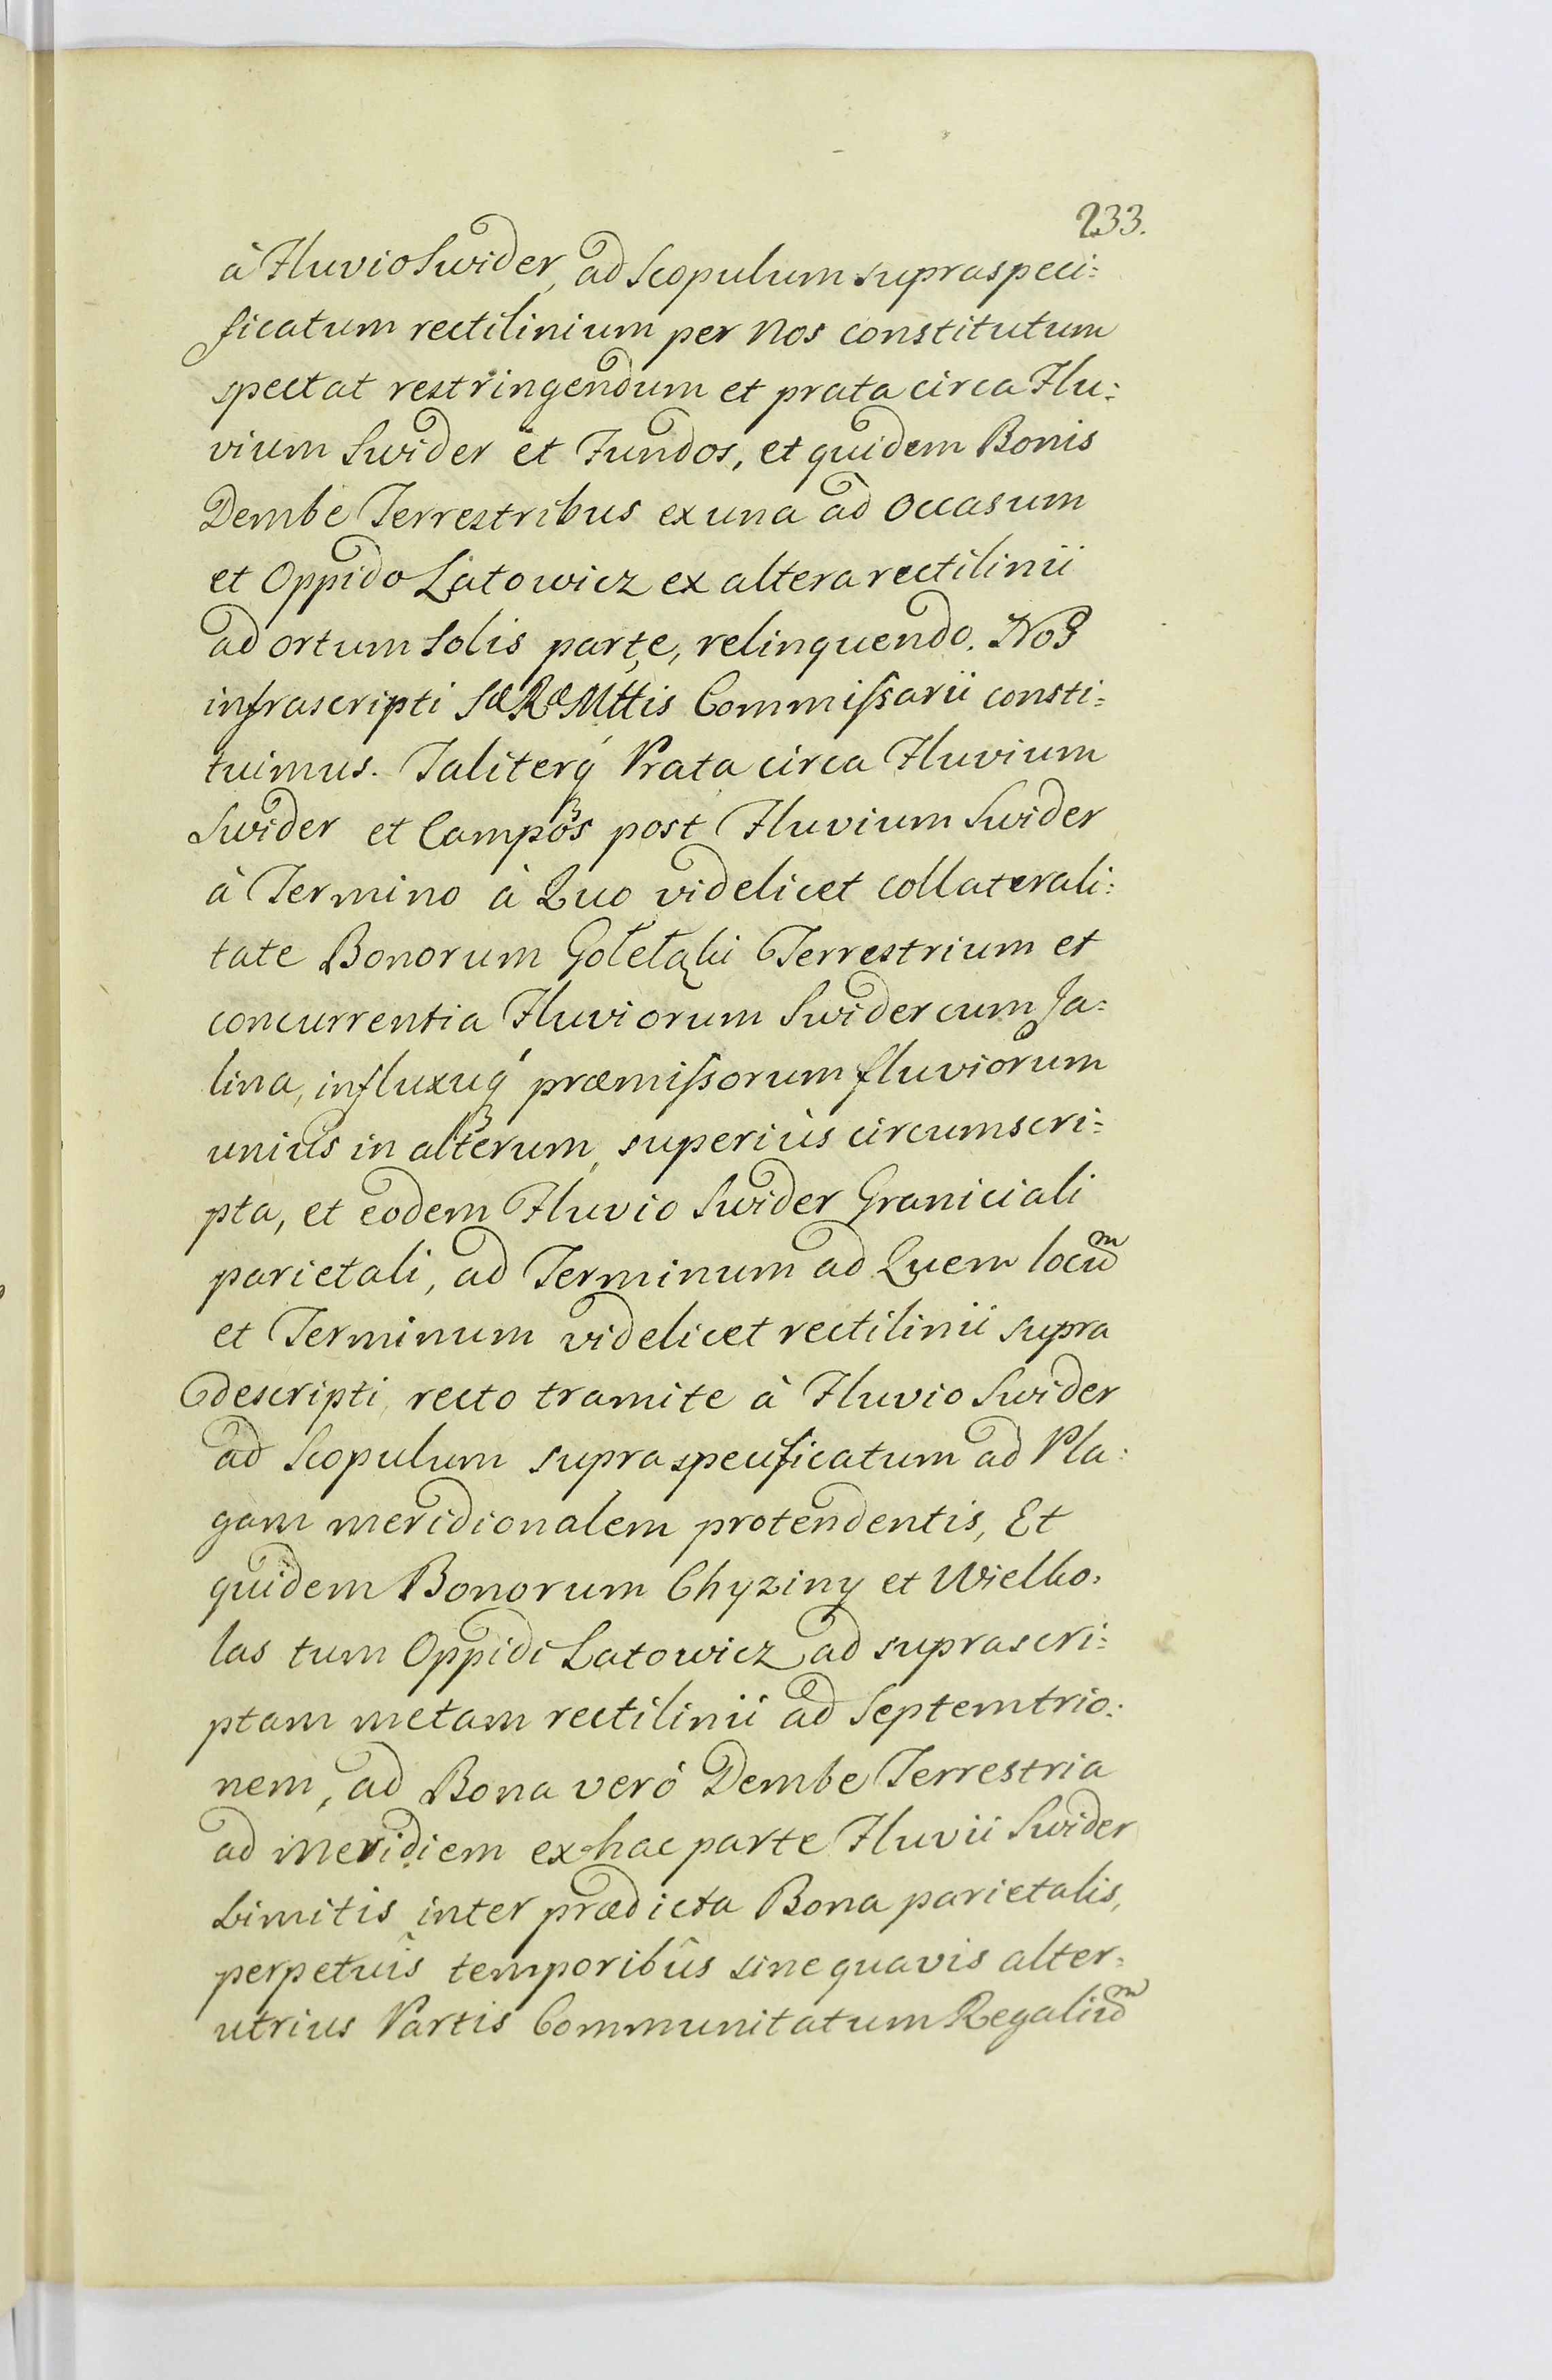 233.
à Fluvio Swider, ad Scopulum supraspeci:
ficatum rectilinium per Nos constitutum
spectat restringendum et prata circa Flu:
vium Swider et Fundos, et quidem Bonis
Dembe Terrestribus ex una ad Occasum
et Oppido Latowicz ex altera rectilinii
ad ortum Solis parte, relinquendo. Nos
infrascripti Sæ Ræ Mttis Commißarii consti:
tuimus. Taliterq́ Prata circa Fluvium
Swider et Campos post Fluvium Swider
à Termino à Quo videlicet collaterali:
tate Bonorum Terrestrium et
concurrentia Fluviorum Swider cum Ja:
lina, influxuq́ præmißorum fluviorum
unius in alterum, superius circumscri:
pta, et eodem Fluvio Swider Graniciali
parietali, ad Terminum ad Quem locum
et Terminum videlicet rectilinii supra
descripti, recto tramite à Fluvio Swider
ad Scopulum supraspecificatum ad Pla:
gam meridionalem protendentis, Et
quidem Bonorum Chyziny et Wielko:
las tum Oppidi Latowicz ad suprascri:
ptam metam rectilinii ad Septemtrio:
nem, ad Bona veró Dembe Terrestria
ad Meridiem ex hac parte Fluvii Swider
Limitis inter prædicta Bona parietalis,
perpetuis temporibûs sine quavis alter:
utrius Partis Communitatum Regalium